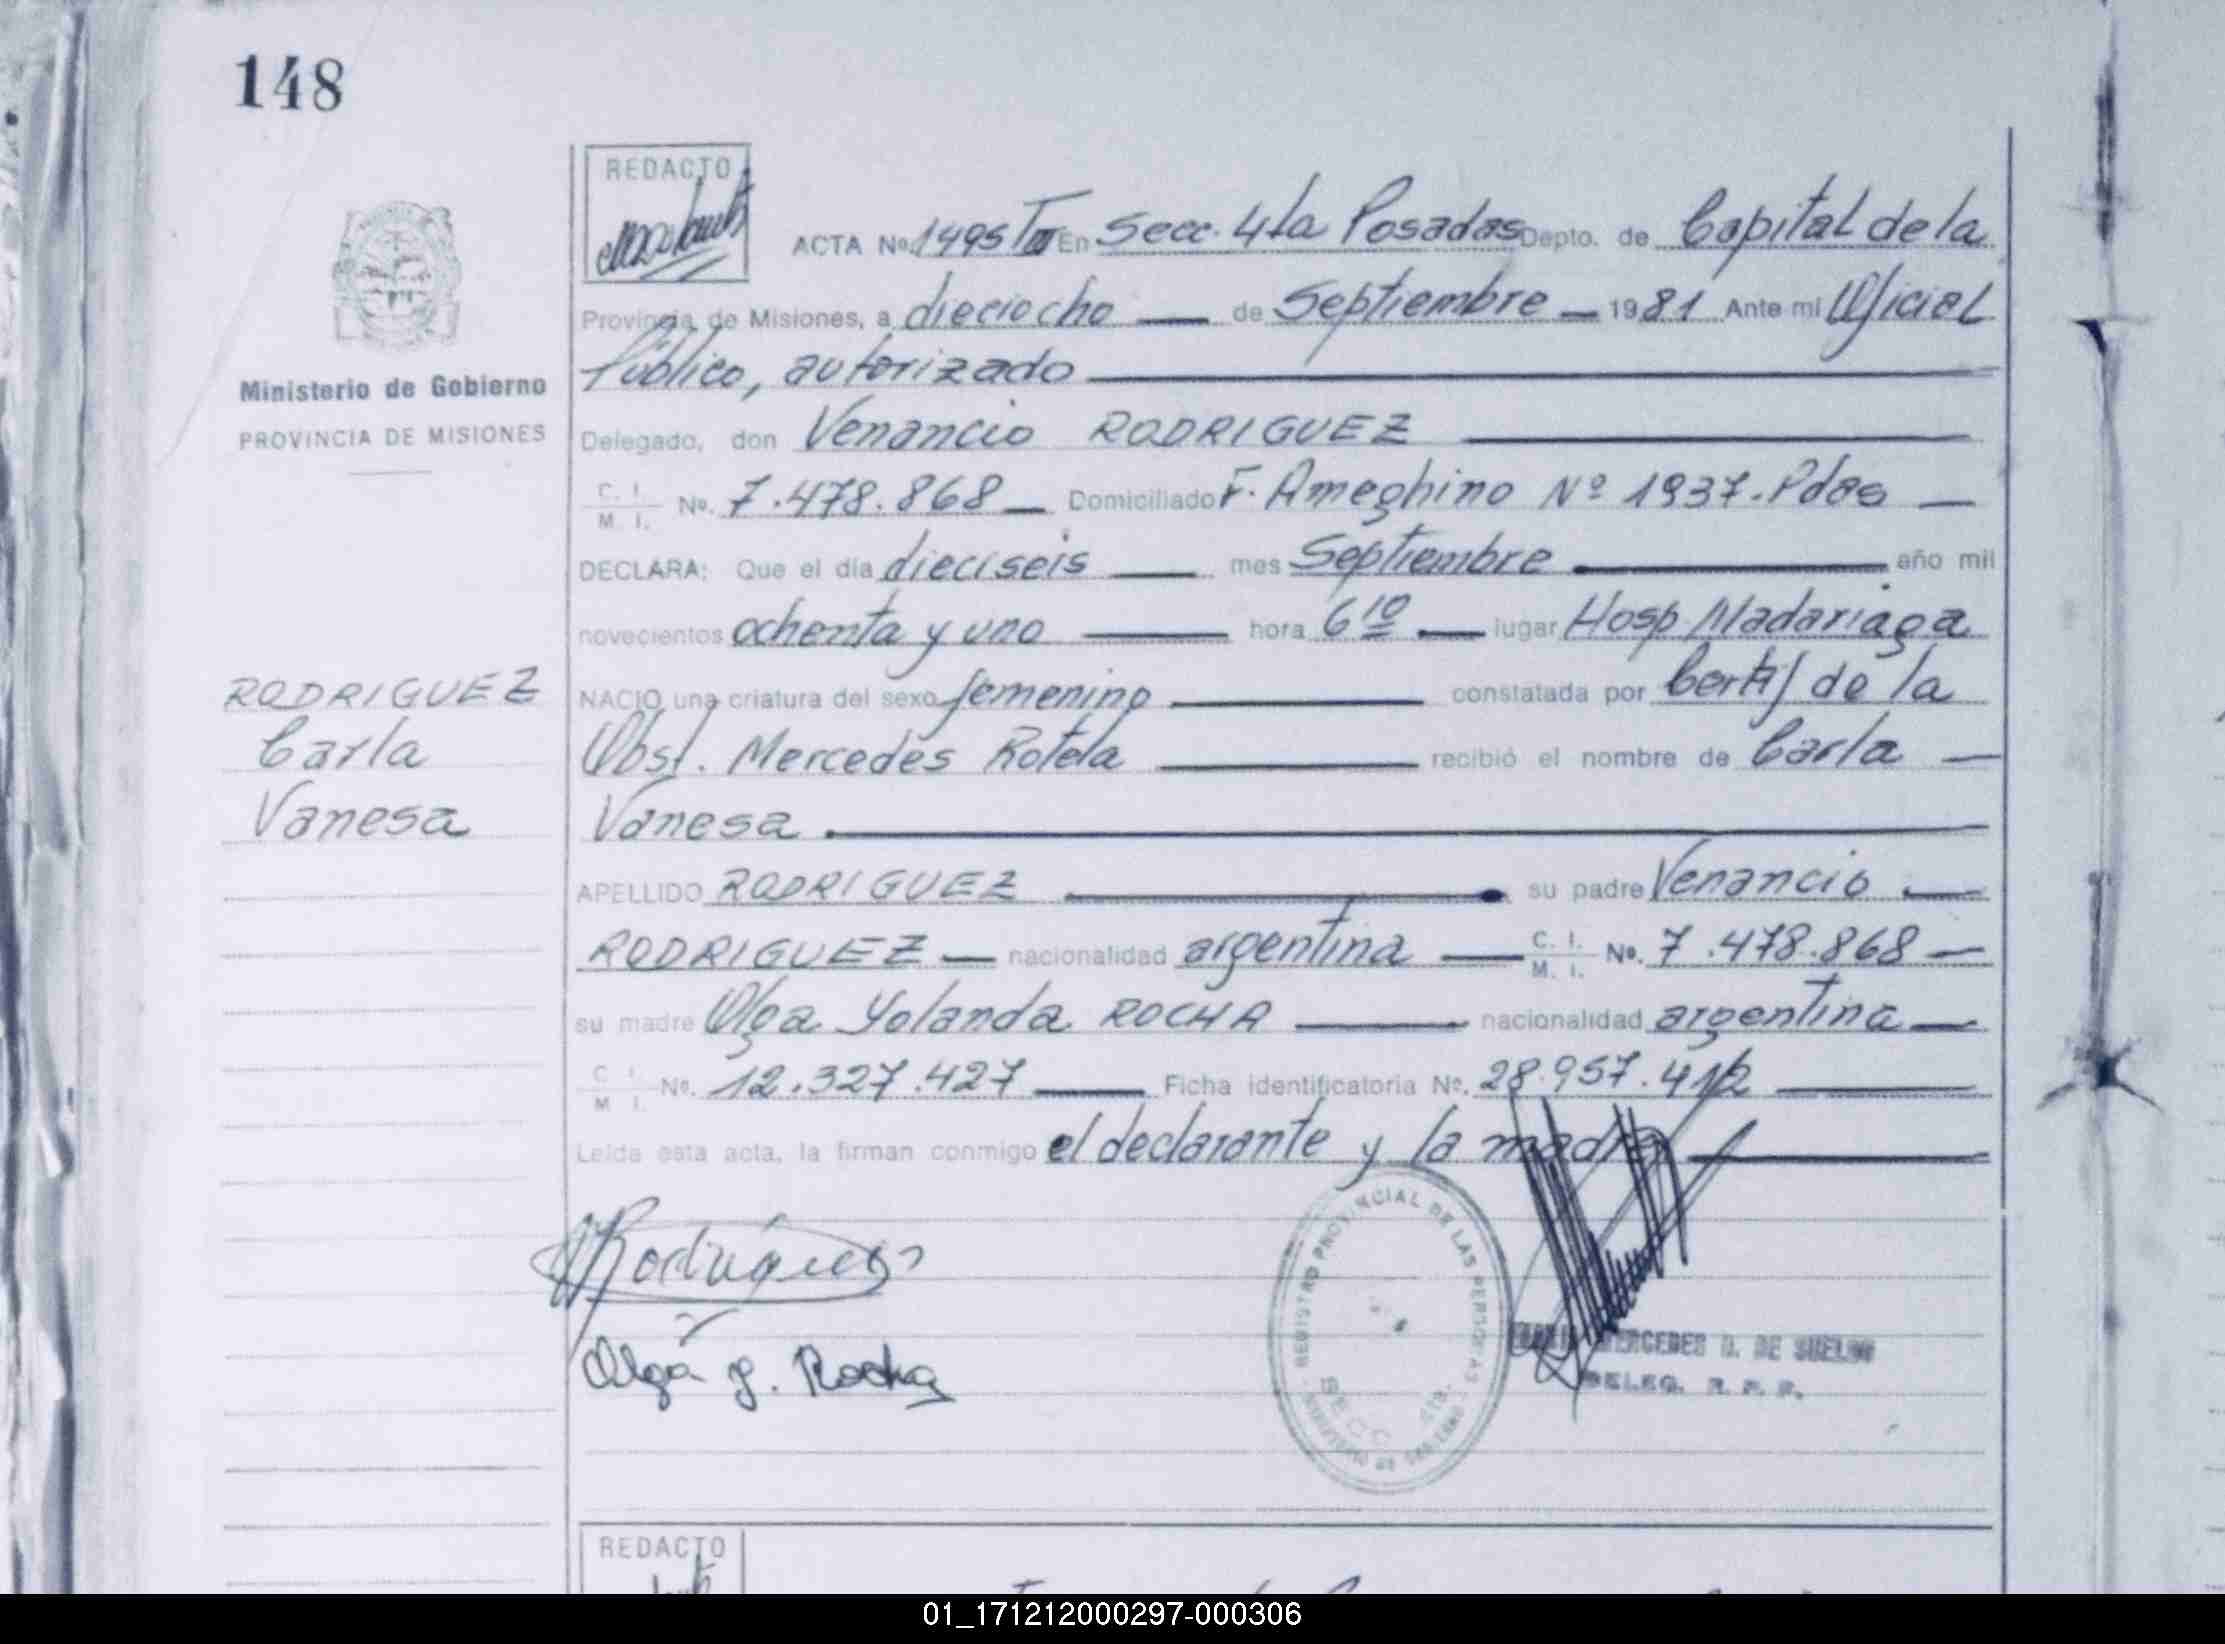 148
REDACTO
ACTA No. 1495 T III En Secc. 4ta Posadas Depto. de Capital de la
Provincia de Misiones, a dieciocho de Septiembre 1981 Ante mi Oficial
Público, autorizado
Ministerio de Gobierno
PROVINCIA DE MISIONES
Delegado, don Venancio RODRIGUEZ
C. I. M. I. No. 7.478.868 Domiciliado F. Ameghino Nº 1937. Pdas
DECLARA: Que el día dieciseis mes Septiembre año mil
novecientos ochenta y uno hora 6 10 lugar Hosp. Madariaga
RODRIGUEZ
Carla
Vanesa
NACIO una criatura del sexo femenino constatada por Certif de la
Obst. Mercedes Rotela recibió el nombre de Carla
Vanesa
APELLIDO RODRIGUEZ su padre Venancio
RODRIGUEZ nacionalidad argentina C. I. M. I. No. 7.478.868
su madre Olga Yolanda ROCHA nacionalidad argentina
C. I. M. I. No. 12.327.427 Ficha identificatoria No. 28.957.412
Leída esta acta, la firman conmigo el declarante y la madre
Rodríguez
Olga Y. Rocha
REGISTRO PROVINCIAL DE LAS PERSONAS
SECC.
MINISTERIO DE GOBIERNO
MERCEDES D. DE
DELEG. R. P. P.
REDACTO
01_171212000297-000306